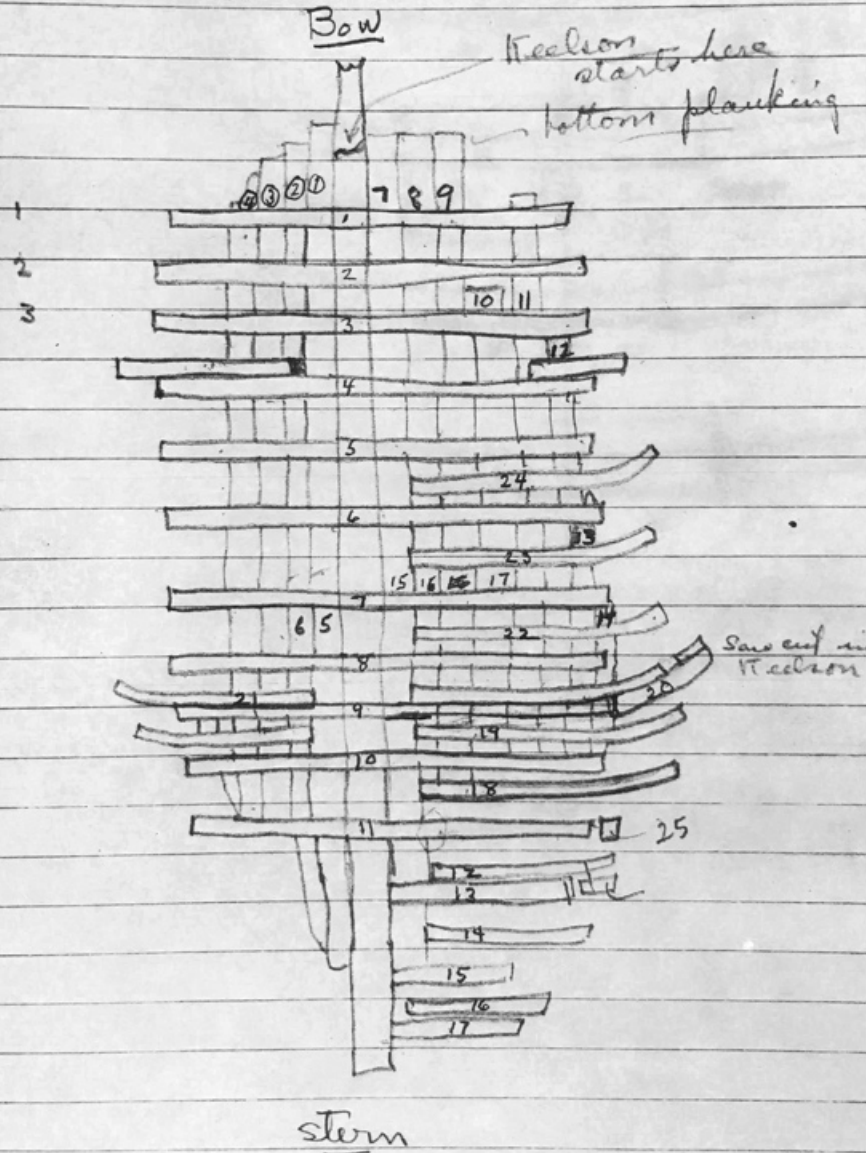 Bow
Keelson
starts here
bottom planking
4 3 2 1 7 8 9
1 1
2 2
10 11
3 3
12
4
5
24
6
13
23
15 16 17
7
14
6 5
22
8
Saw cut in
Keelson
20
21
9
19
10
18
11 25
12
13
14
15
16
17
stern